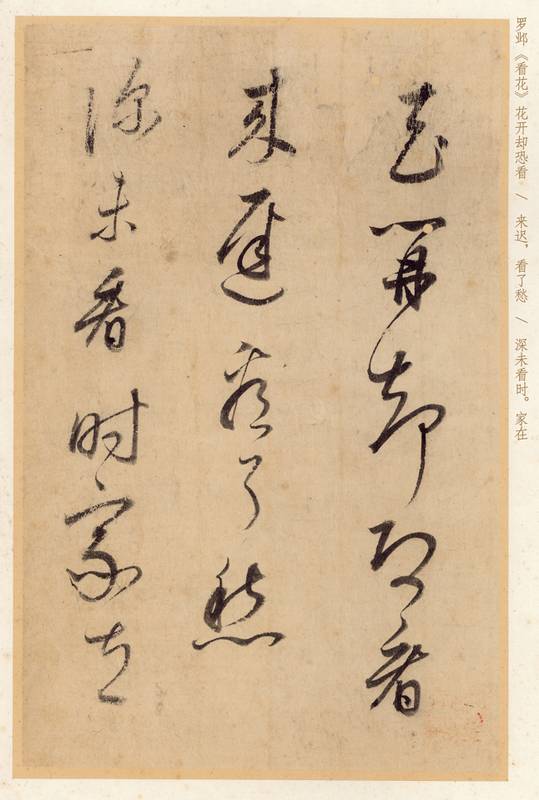 罗邺《看花》花开却恐看 / 来迟，看了愁 / 深未看时。家在
花開却恐看
来遲看了愁
深未看时家在